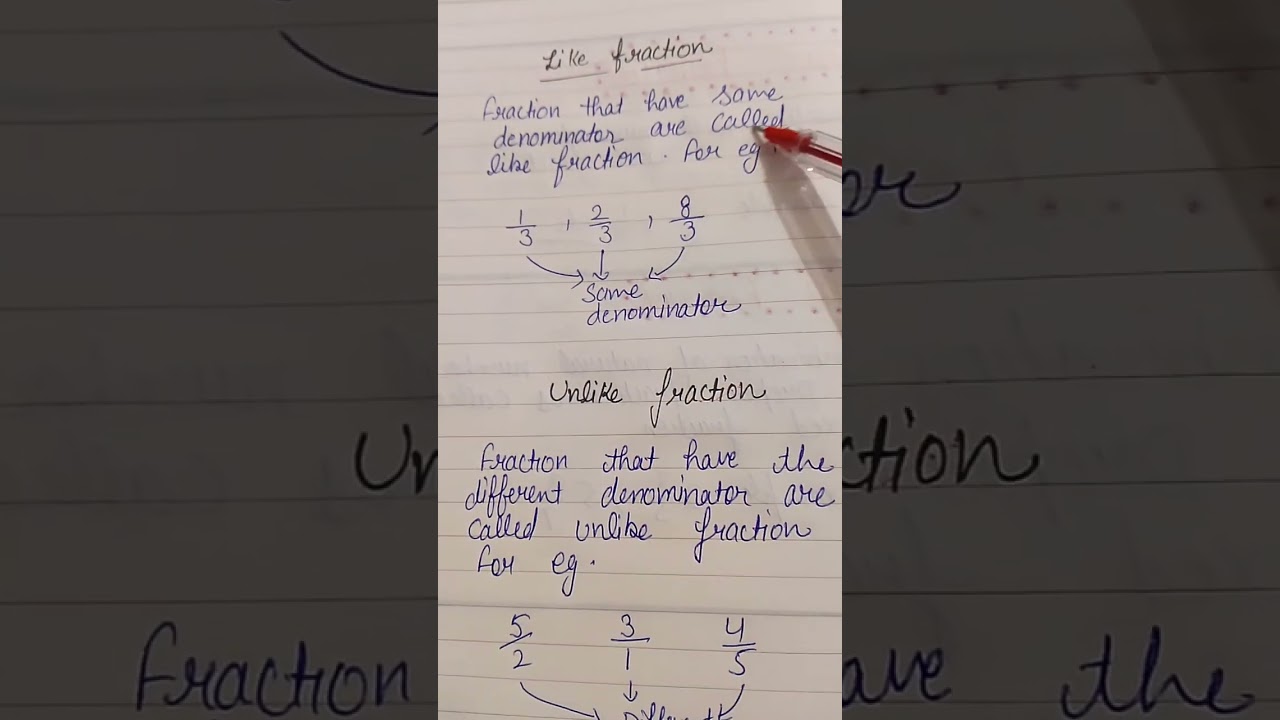 Like fraction
fraction that have same
denominator are called
like fraction. for eg.
1/3 , 2/3 , 8/3
Same
denominator
Unlike fraction
fraction that have the
different denominator are
called unlike fraction
for eg.
5/2 3/1 4/5